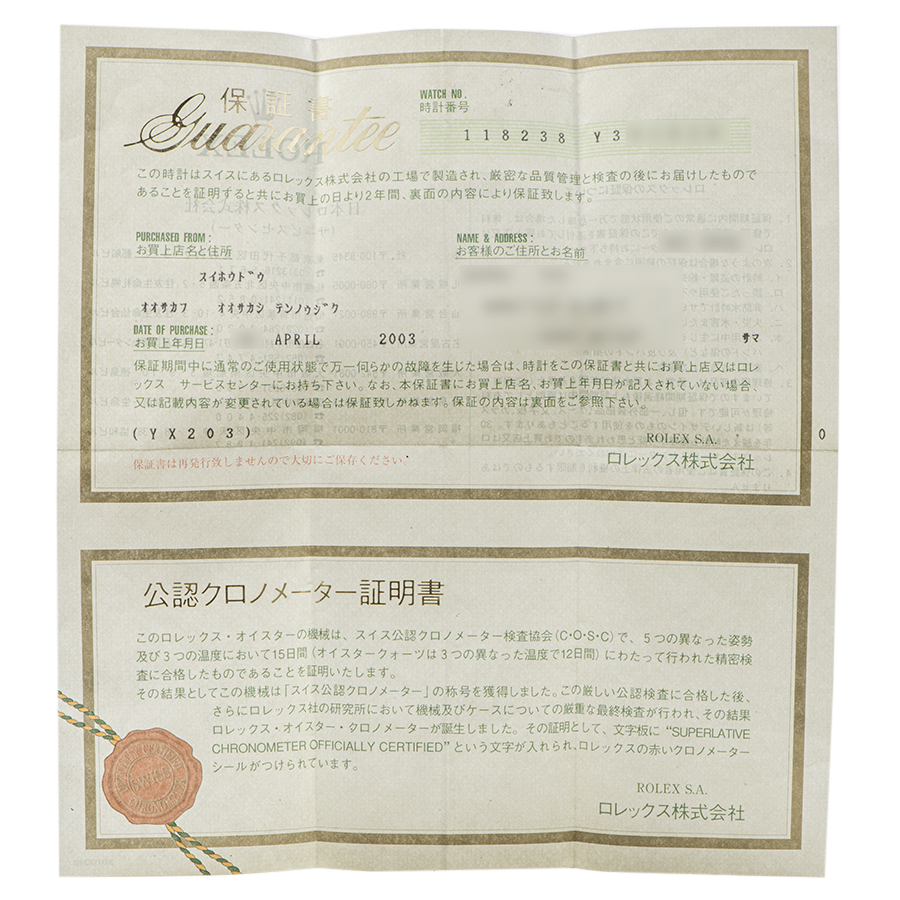 保証書
Guarantee
WATCH NO.
時計番号
118238 Y3
この時計はスイスにあるロレックス株式会社の工場で製造され、厳密な品質管理と検査の後にお届けしたもので
あることを証明すると共にお買上の日より2年間、裏面の内容により保証致します。
PURCHASED FROM :
お買上店名と住所
スイホウドウ
オオサカフ オオサカシ テンノウジク
NAME & ADDRESS :
お客様のご住所とお名前
サマ
DATE OF PURCHASE :
お買上年月日
APRIL 2003
保証期間中に通常のご使用状態で万一何らかの故障を生じた場合は、時計をこの保証書と共にお買上店又はロレ
ックス サービスセンターにお持ち下さい。なお、本保証書にお買上店名、お買上年月日が記入されていない場合、
又は記載内容が変更されている場合は保証致しかねます。保証の内容は裏面をご参照下さい。
(YX203)
0
ROLEX S.A.
ロレックス株式会社
保証書は再発行致しませんので大切にご保存ください。
公認クロノメーター証明書
このロレックス・オイスターの機械は、スイス公認クロノメーター検査協会(C・O・S・C)で、5つの異なった姿勢
及び3つの温度において15日間(オイスタークォーツは3つの異なった温度で12日間)にわたって行われた精密検
査に合格したものであることを証明いたします。
その結果としてこの機械は「スイス公認クロノメーター」の称号を獲得しました。この厳しい公認検査に合格した後、
さらにロレックス社の研究所において機械及びケースについての厳重な最終検査が行われ、その結果
ロレックス・オイスター・クロノメーターが誕生しました。その証明として、文字板に “SUPERLATIVE
CHRONOMETER OFFICIALLY CERTIFIED” という文字が入れられ、ロレックスの赤いクロノメーター
シールがつけられています。
SWISS
ROLEX S.A.
ロレックス株式会社